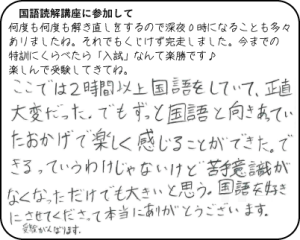 国語読解講座に参加して
何度も何度も解き直しをするので深夜0時になることも多々
ありましたね。それでもくじけず完走しました。今までの
特訓にくらべたら「入試」なんて楽勝です♪
楽しんで受験してきてね。
ここでは2時間以上国語をしていて、正直
大変だった。でもずっと国語と向きあってい
たおかげで楽しく感じることができた。で
きるっていうわけじゃないけど苦手意識が
なくなっただけでも大きいと思う。国語を好き
にさせてくださって本当にありがとうございます。
受験がんばります。